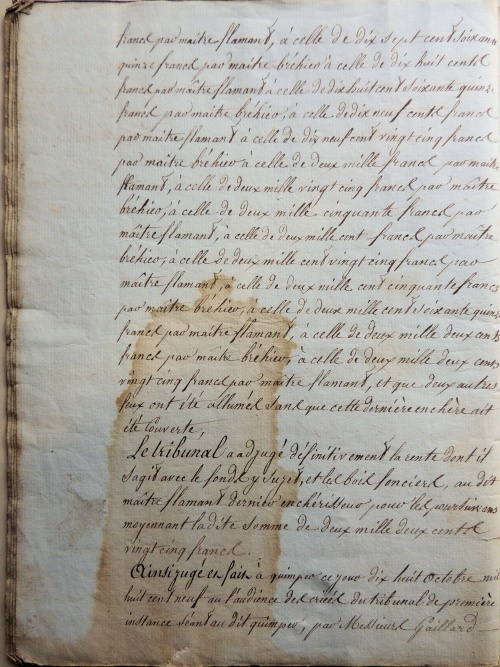 francs par maitre flamant, à celle de dix sept cent soixante
quinze francs par maitre bréhier à celle de dix huit cents
francs par maître flamant à celle de dix huit cent soixante quinze
francs par maitre bréhier, à celle de dix neuf cents francs
par maitre flamant à celle de dix neuf cent vingt cinq francs
par maitre bréhier à celle de deux mille francs par maitre
flamant, à celle de deux mille vingt cinq francs par maître
bréhier, à celle de deux mille cinquante francs par
maître flamant, à celle de deux mille cent francs par maitre
bréhier, à celle de deux mille cent vingt cinq francs par
maitre flamant, à celle de deux mille cent cinquante francs
par maitre bréhier, à celle de deux mille cent soixante quinze
francs par maitre flamant, à celle de deux mille deux cents
francs par maitre bréhier, à celle de deux mille deux cent
vingt cinq francs par maitre flamant, et que deux autres
feux ont été allumés sans que cette dernière enchère ait
été couverte,
Le tribunal a adjugé définitivement la rente dont il
sagit avec le fonds y sujet, et les bois fonciers, au dit
maître flamant dernier enchérisseur pour les
moyennant la dite somme de deux mille deux cents
vingt cinq francs.
Ainsi jugé et fait à quimper ce jour dix huit Octobre mil
huit cent neuf au l'audience des criées du tribunal de première
instance séant au dit quimper, par Messieurs Gaillard